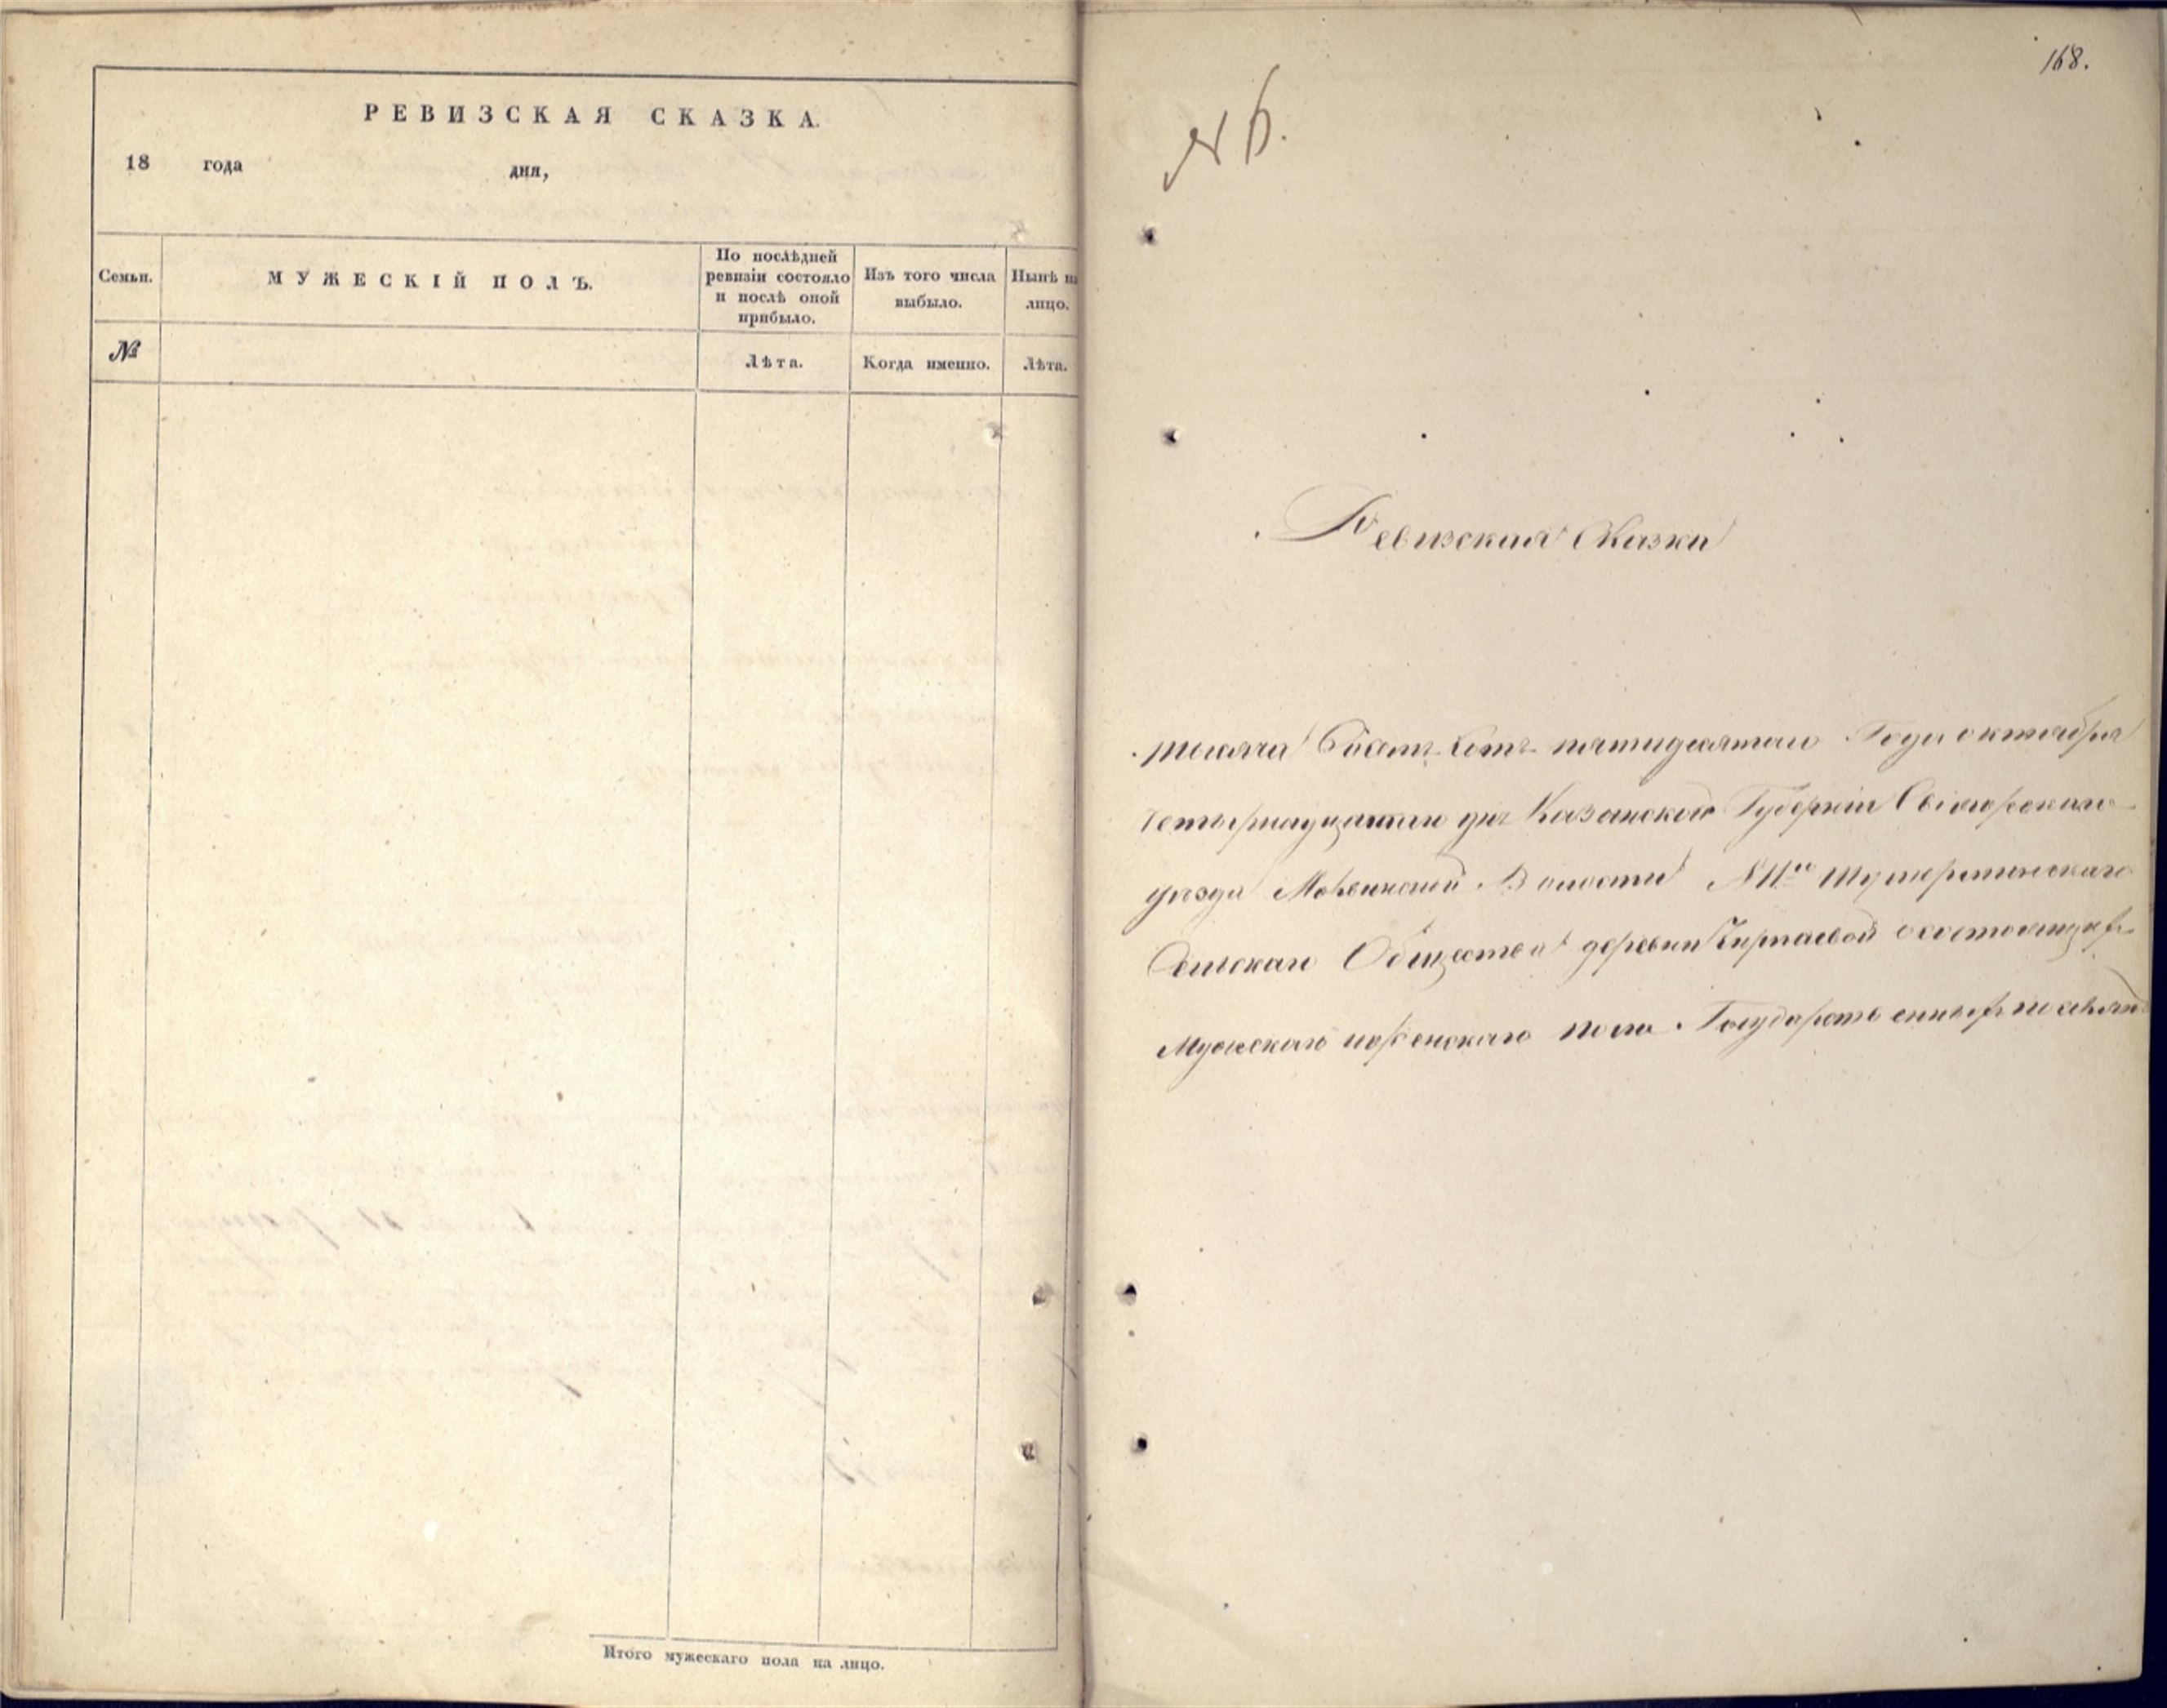 РЕВИЗСКАЯ СКАЗКА.
18 года дня,
Семьи.
МУЖЕСКІЙ ПОЛЪ.
По послѣдней
ревизіи состояло
и послѣ оной
прибыло.
Изъ того числа
выбыло.
Нынѣ на
лицо.
№
Лѣта.
Когда именно.
Лѣта.
Итого мужескаго пола на лицо.
168.
№ 6.
Ревизская Сказка
тысяча Восемь Сотъ пятидесятаго Года октября
Четырнадцатаго дня Казанской Губерніи Свіяжскаго
уѣзда Волости № 11го
Сельскаго Общества деревни о состоящихъ
Мужескаго и женскаго пола Государственныхъ